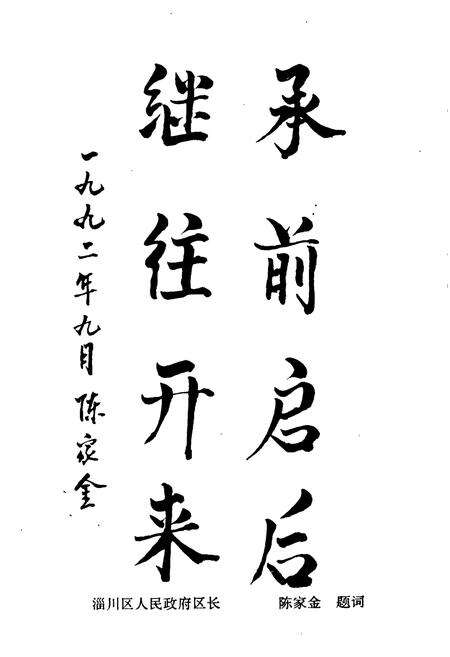 承前启后
继往开来
一九九二年九月 陈家金
淄川区人民政府区长 陈家金 题词